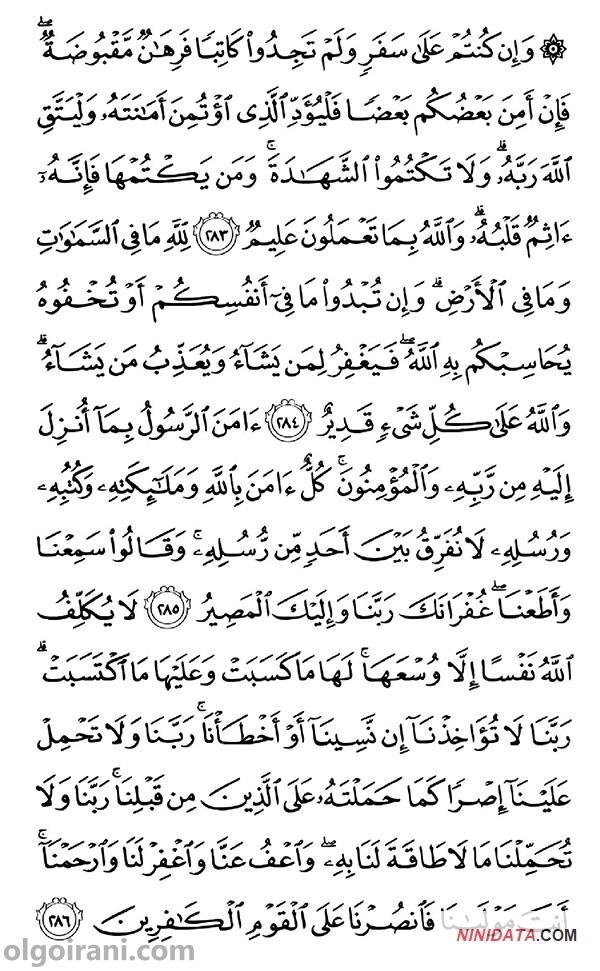 ۞ وَإِن كُنتُمْ عَلَىٰ سَفَرٍ وَلَمْ تَجِدُوا۟ كَاتِبًا فَرِهَـٰنٌ مَّقْبُوضَةٌ ۖ
فَإِنْ أَمِنَ بَعْضُكُم بَعْضًا فَلْيُؤَدِّ ٱلَّذِى ٱؤْتُمِنَ أَمَـٰنَتَهُۥ وَلْيَتَّقِ
ٱللَّهَ رَبَّهُۥ ۗ وَلَا تَكْتُمُوا۟ ٱلشَّهَـٰدَةَ ۚ وَمَن يَكْتُمْهَا فَإِنَّهُۥٓ
ءَاثِمٌ قَلْبُهُۥ ۗ وَٱللَّهُ بِمَا تَعْمَلُونَ عَلِيمٌ ٢٨٣ لِّلَّهِ مَا فِى ٱلسَّمَـٰوَٰتِ
وَمَا فِى ٱلْأَرْضِ ۗ وَإِن تُبْدُوا۟ مَا فِىٓ أَنفُسِكُمْ أَوْ تُخْفُوهُ
يُحَاسِبْكُم بِهِ ٱللَّهُ ۖ فَيَغْفِرُ لِمَن يَشَآءُ وَيُعَذِّبُ مَن يَشَآءُ ۗ
وَٱللَّهُ عَلَىٰ كُلِّ شَىْءٍ قَدِيرٌ ٢٨٤ ءَامَنَ ٱلرَّسُولُ بِمَآ أُنزِلَ
إِلَيْهِ مِن رَّبِّهِۦ وَٱلْمُؤْمِنُونَ ۚ كُلٌّ ءَامَنَ بِٱللَّهِ وَمَلَـٰٓئِكَتِهِۦ وَكُتُبِهِۦ
وَرُسُلِهِۦ لَا نُفَرِّقُ بَيْنَ أَحَدٍ مِّن رُّسُلِهِۦ ۚ وَقَالُوا۟ سَمِعْنَا
وَأَطَعْنَا ۖ غُفْرَانَكَ رَبَّنَا وَإِلَيْكَ ٱلْمَصِيرُ ٢٨٥ لَا يُكَلِّفُ
ٱللَّهُ نَفْسًا إِلَّا وُسْعَهَا ۚ لَهَا مَا كَسَبَتْ وَعَلَيْهَا مَا ٱكْتَسَبَتْ ۗ
رَبَّنَا لَا تُؤَاخِذْنَآ إِن نَّسِينَآ أَوْ أَخْطَأْنَا ۚ رَبَّنَا وَلَا تَحْمِلْ
عَلَيْنَآ إِصْرًا كَمَا حَمَلْتَهُۥ عَلَى ٱلَّذِينَ مِن قَبْلِنَا ۚ رَبَّنَا وَلَا
تُحَمِّلْنَا مَا لَا طَاقَةَ لَنَا بِهِۦ ۖ وَٱعْفُ عَنَّا وَٱغْفِرْ لَنَا وَٱرْحَمْنَآ ۚ
أَنتَ مَوْلَىٰنَا فَٱنصُرْنَا عَلَى ٱلْقَوْمِ ٱلْكَـٰفِرِينَ ٢٨٦
NINIDATA.COM
olgoirani.com